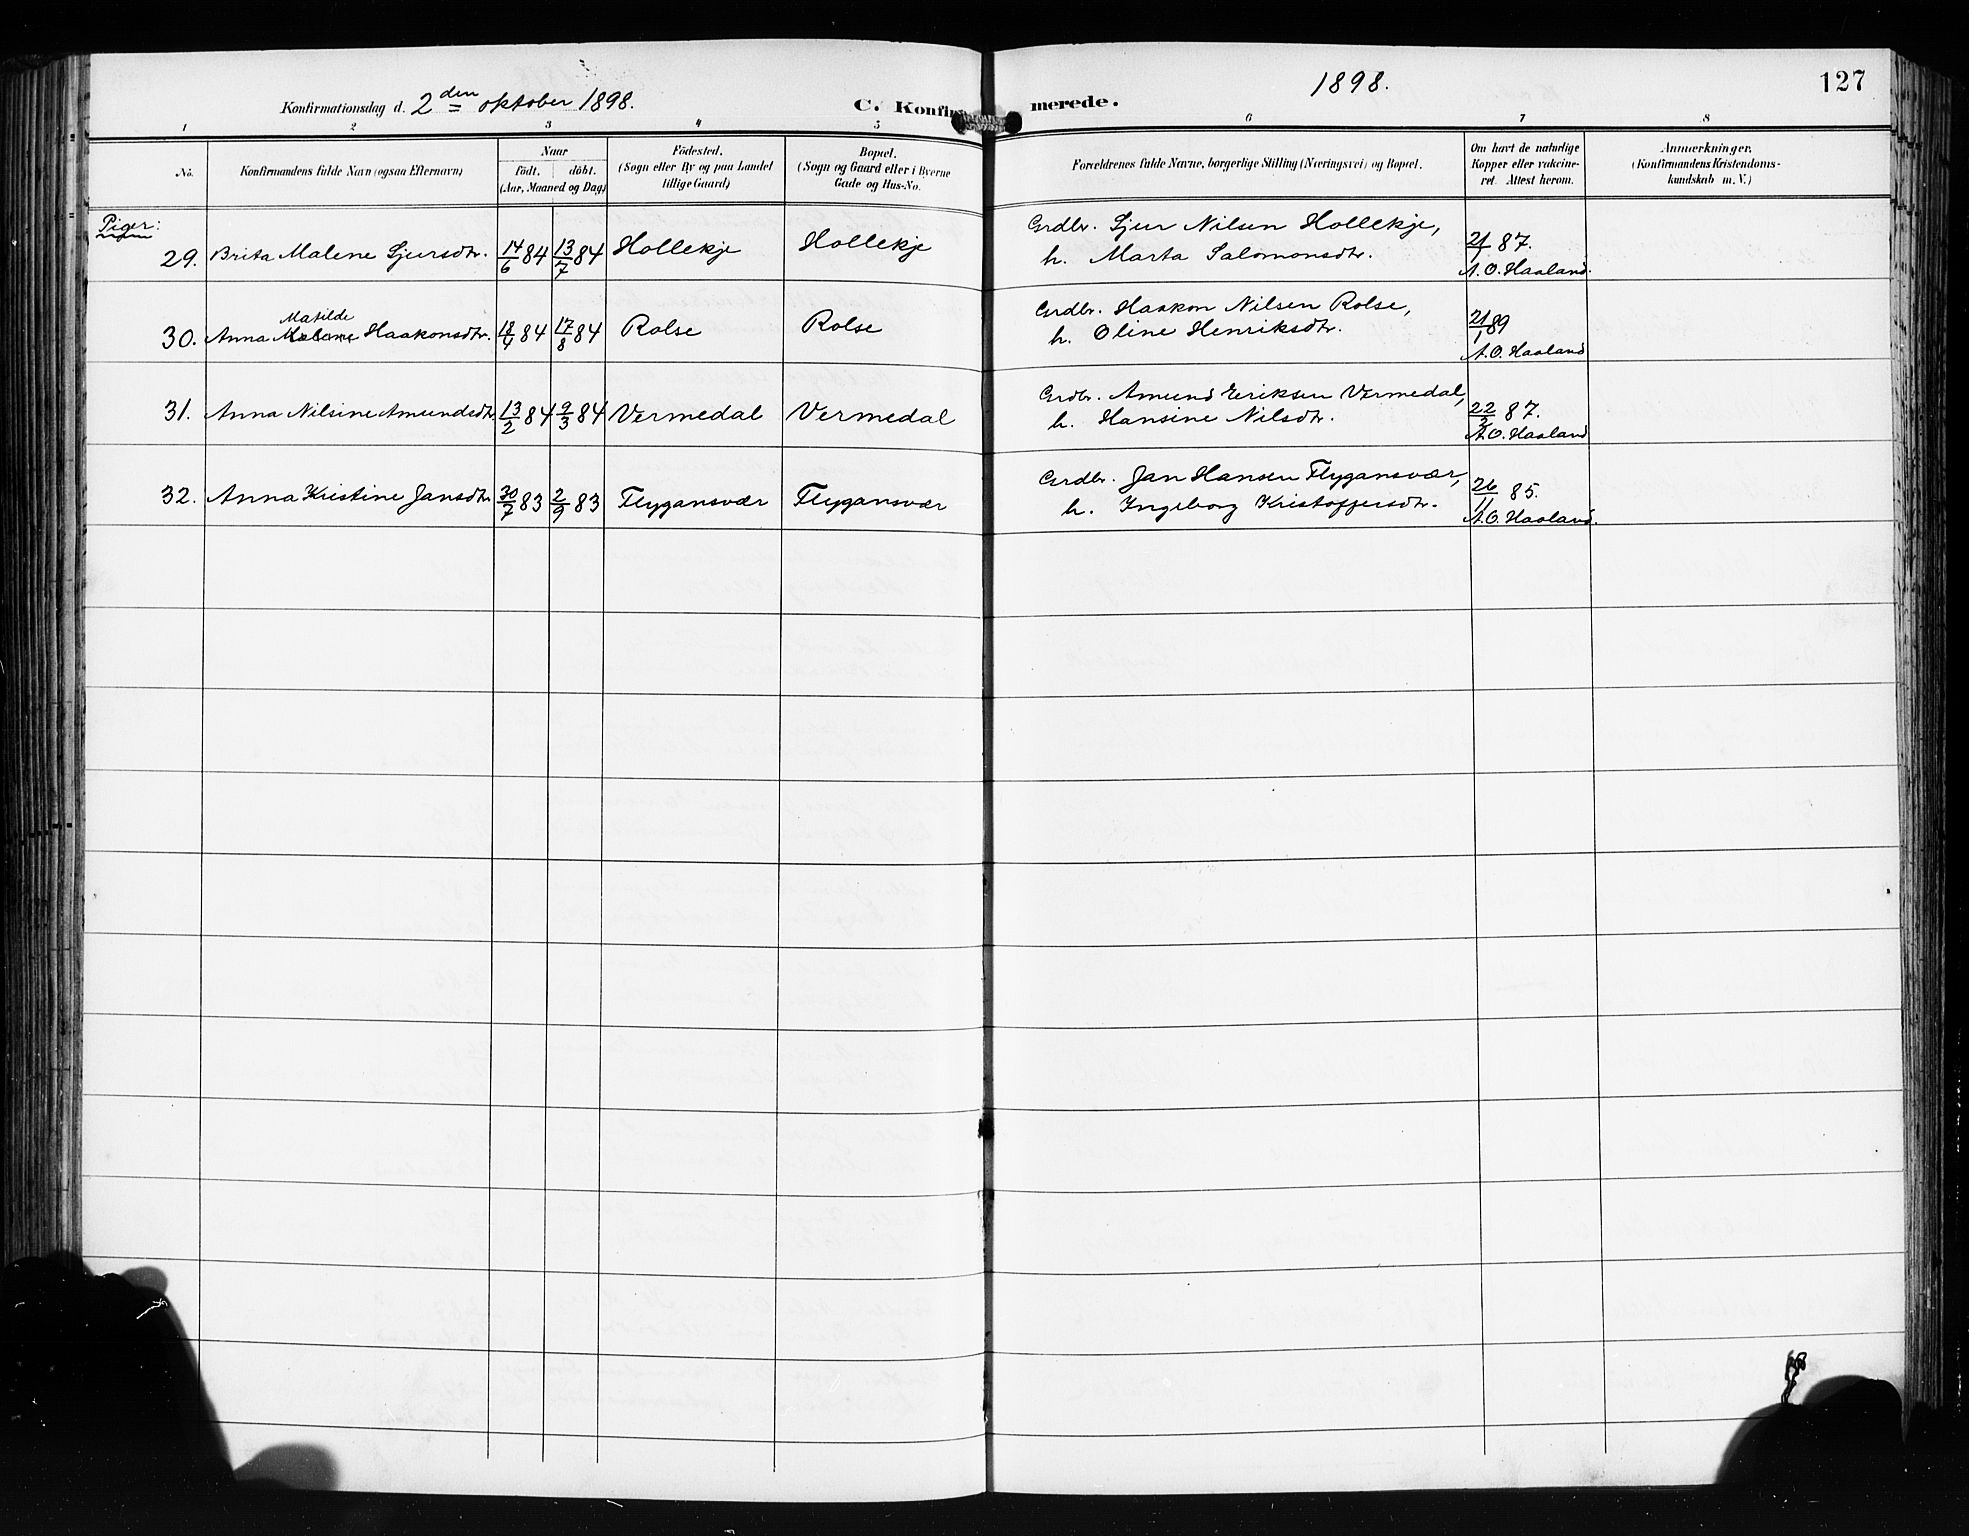 Konfirmationsdag d. 2den oktober 1898.
C. Konfirmerede.
1898.
127
1 2 3 4 5 6 7 8
No.
Konfirmandens fulde Navn (ogsaa Efternavn)
Naar
födt. döbt.
(Aar, Maaned og Dag)
Födested.
(Sogn eller By og paa Landet
tillige Gaard)
Bopæl.
(Sogn og Gaard eller i Byerne
Gade og Hus-No.
Forældrenes fulde Navne, borgerlige Stilling (Næringsvei) og Bopæl.
Om havt de naturlige
Kopper eller vakcine-
ret. Attest herom.
Anmærkninger.
(Konfirmandens Kristendoms-
kundskab m. V.)
Piger:
29. Brita Malene Sjursdtr. 14/6 84 13/7 84 Hollekje Hollekje
Grdbr. Sjur Nilsen Hollekje,
h. Marta Salomonsdtr.
21/1 87.
A. O. Haaland.
Matilde
30. Anna Malene Haakonsdtr. 18/4 84 17/8 84 Rolse Rolse
Grdbr. Haakon Nilsen Rolse,
h. Oline Henriksdtr.
21/1 89
A. O. Haaland
31. Anna Nilsine Amundsdtr 13/2 84 9/3 84 Vermedal Vermedal
Grdbr. Amund Eriksen Vermedal,
h. Hansine Nilsdtr.
22/3 87.
A. O. Haaland
32. Anna Kristine Jansdtr 30/7 83 2/9 83 Flygansvær Flygansvær
Grdbr. Jan Hansen Flygansvær,
h. Ingeborg Kristoffersdtr.
26/11 85.
A. O. Haaland.